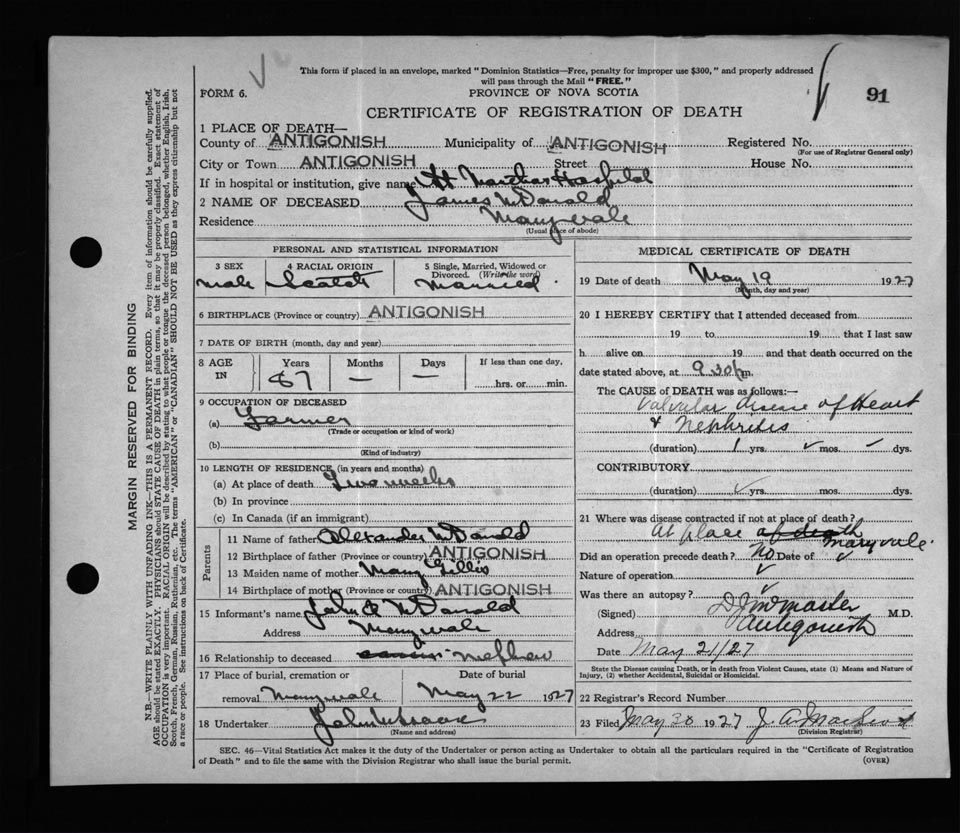 This form if placed in an envelope, marked "Dominion Statistics—Free, penalty for improper use $300," and properly addressed
will pass through the Mail "FREE."
91
FORM 6.
PROVINCE OF NOVA SCOTIA
CERTIFICATE OF REGISTRATION OF DEATH
1 PLACE OF DEATH—
County of ANTIGONISH Municipality of ANTIGONISH Registered No.
(For use of Registrar General only)
City or Town ANTIGONISH Street House No.
If in hospital or institution, give name St Marthas Hospital
2 NAME OF DECEASED James McDonald
Residence Maryvale
(Usual place of abode)
PERSONAL AND STATISTICAL INFORMATION
3 SEX
male
4 RACIAL ORIGIN
Scotch
5 Single, Married, Widowed or
Divorced. (Write the word)
Married
6 BIRTHPLACE (Province or country) ANTIGONISH
7 DATE OF BIRTH (month, day and year)
8 AGE
IN
Years
87
Months
—
Days
—
If less than one day,
hrs. or min.
9 OCCUPATION OF DECEASED
(a) Farmer
(Trade or occupation or kind of work)
(b)
(Kind of industry)
10 LENGTH OF RESIDENCE (in years and months)
(a) At place of death Two weeks
(b) In province
(c) In Canada (if an immigrant)
Parents
11 Name of father Alexander McDonald
12 Birthplace of father (Province or country) ANTIGONISH
13 Maiden name of mother Mary Gillis
14 Birthplace of mother (Province or country) ANTIGONISH
15 Informant's name John McDonald
Address Maryvale
16 Relationship to deceased nephew
17 Place of burial, cremation or Date of burial
removal Maryvale May 22 1927
18 Undertaker John
(Name and address)
MEDICAL CERTIFICATE OF DEATH
19 Date of death May 19 1927
(Month, day and year)
20 I HEREBY CERTIFY that I attended deceased from
19 to 19 that I last saw
h alive on 19 and that death occurred on the
date stated above, at 9.30 p.m.
The CAUSE of DEATH was as follows:—
Valvular disease of Heart
& Nephritis
(duration) 1 yrs. ✓ mos. – dys.
CONTRIBUTORY
(duration) ✓ yrs. mos. dys.
21 Where was disease contracted if not at place of death?
At place of death Maryvale.
Did an operation precede death? No Date of ✓
Nature of operation ✓
Was there an autopsy? ✓
(Signed) M.D.
Address Antigonish
Date May 21/27
State the Disease causing Death, or in death from Violent Causes, state (1) Means and Nature of
Injury, (2) whether Accidental, Suicidal or Homicidal.
22 Registrar's Record Number
23 Filed May 30 1927 J. A.
(Division Registrar)
SEC. 46—Vital Statistics Act makes it the duty of the Undertaker or person acting as Undertaker to obtain all the particulars required in the "Certificate of Registration
of Death" and to file the same with the Division Registrar who shall issue the burial permit. (OVER)
MARGIN RESERVED FOR BINDING
N.B.—WRITE PLAINLY WITH UNFADING INK—THIS IS A PERMANENT RECORD. Every item of information should be carefully supplied.
AGE should be stated EXACTLY. PHYSICIANS should STATE CAUSE OF DEATH in plain terms, so that it may be properly classified. Exact statement of
OCCUPATION is very important. RACIAL ORIGIN will be described by stating to what people or tongue the deceased person belonged, whether English, Irish,
Scotch, French, German, Russian, Ruthenian, etc. The terms "AMERICAN" or "CANADIAN" SHOULD NOT BE USED as they express citizenship but not
a race or people. See instructions on back of Certificate.